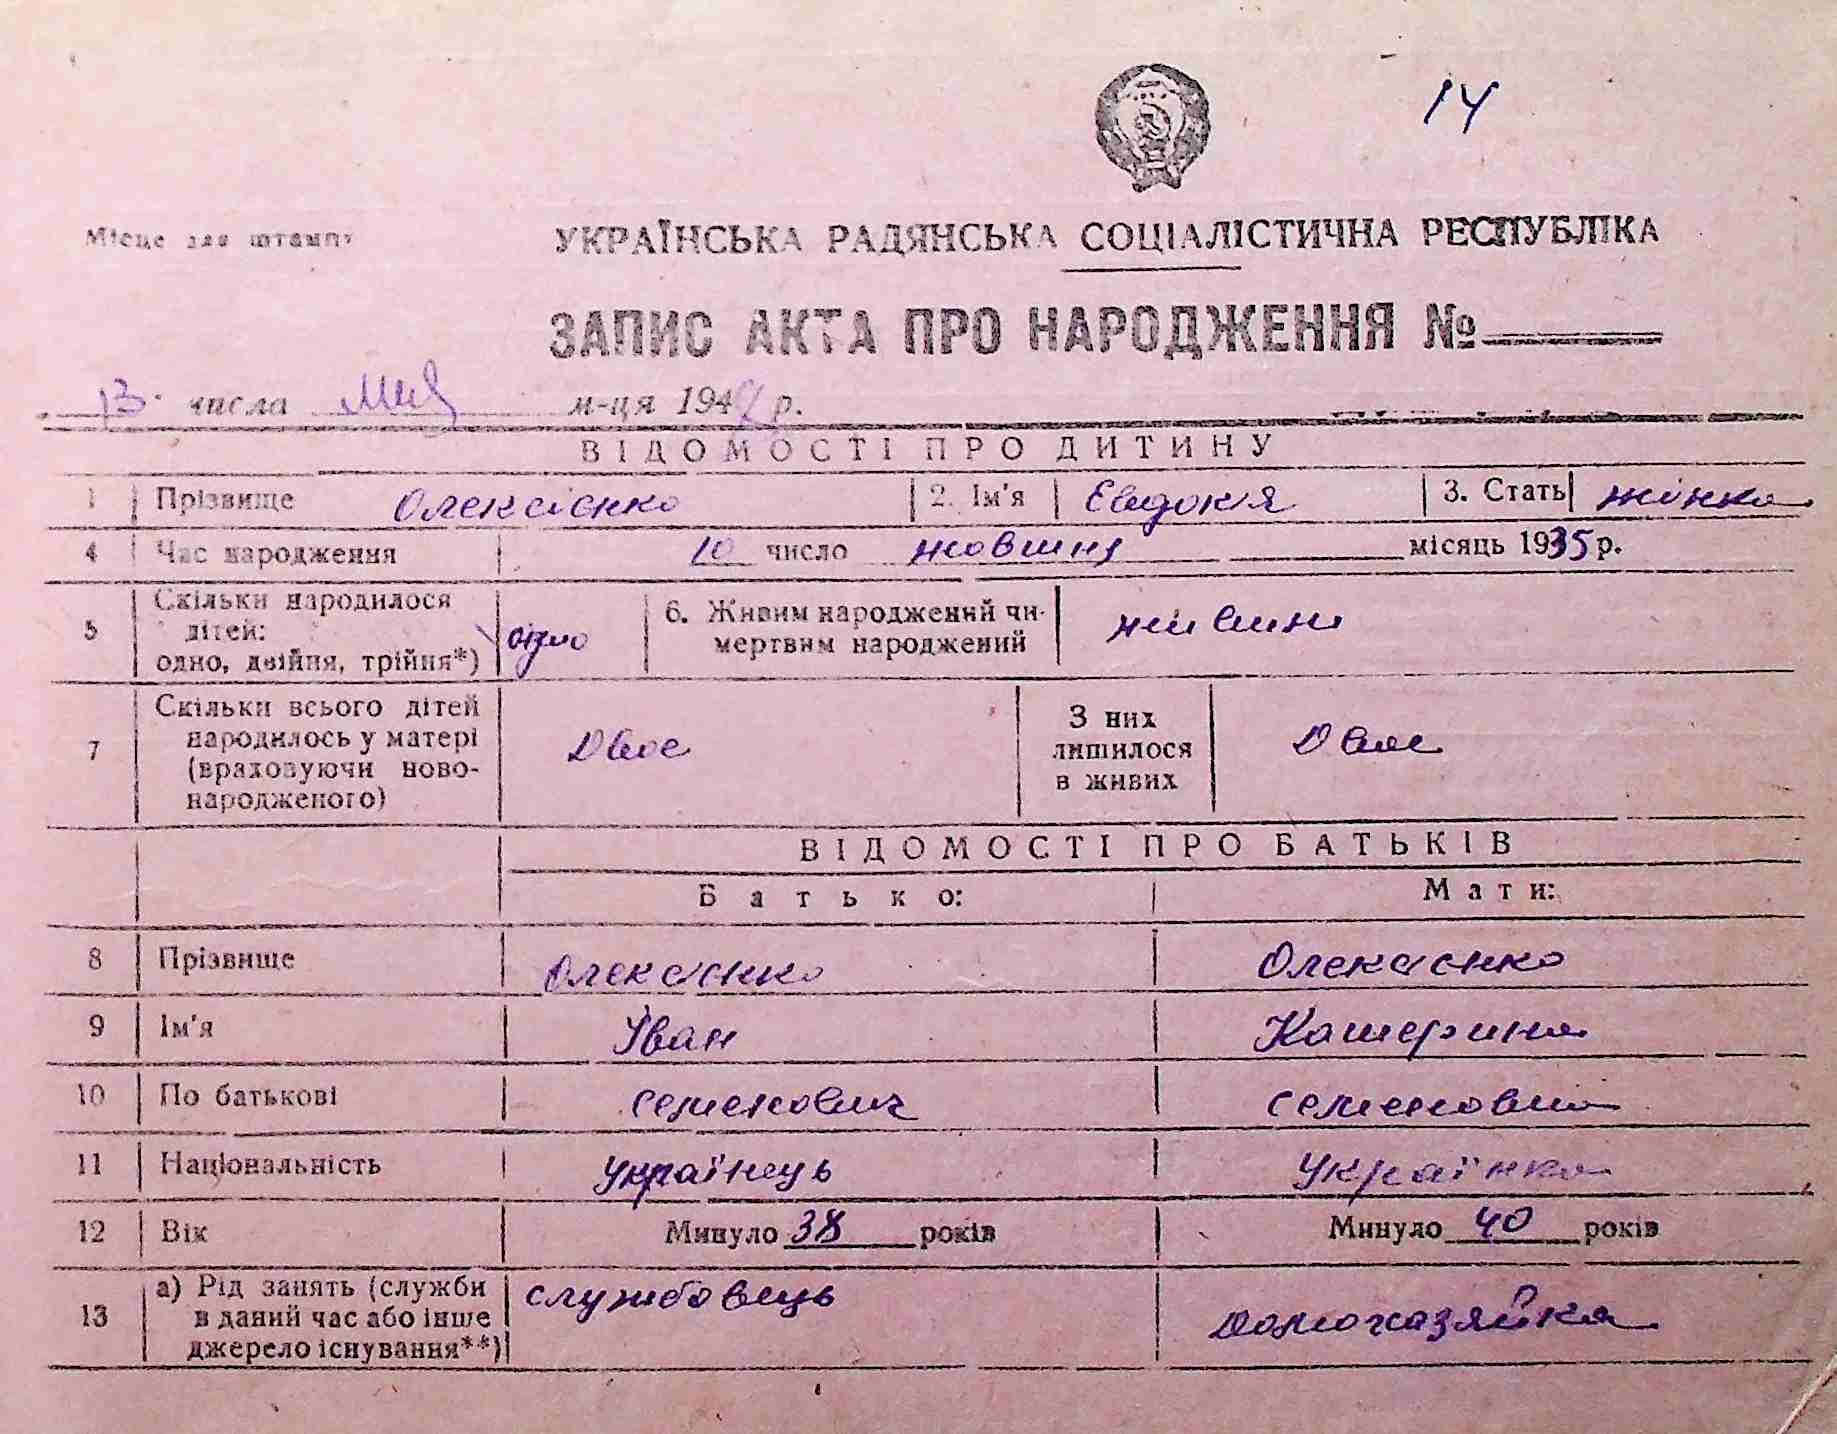 14
Місце для штампу
УКРАЇНСЬКА РАДЯНСЬКА СОЦІАЛІСТИЧНА РЕСПУБЛІКА
ЗАПИС АКТА ПРО НАРОДЖЕННЯ №
13 числа м-ця 194 р.
ВІДОМОСТІ ПРО ДИТИНУ
1 Прізвище Олексієнко 2. Ім'я Євдокія 3. Стать жінка
4 Час народження 10 число жовтня місяць 1935 р.
5 Скільки народилося дітей: одно, двійня, трійня*) одно 6. Живим народжений чи мертвим народжений живим
7 Скільки всього дітей народилось у матері (враховуючи новонародженого) Двоє З них лишилося в живих Двоє
ВІДОМОСТІ ПРО БАТЬКІВ
Батько: Мати:
8 Прізвище Олексієнко Олексієнко
9 Ім'я Іван Катерина
10 По батькові семенович семеновна
11 Національність українець українка
12 Вік Минуло 38 років Минуло 40 років
13 а) Рід занять (служби в даний час або інше джерело існування**) службовець домохазяйка